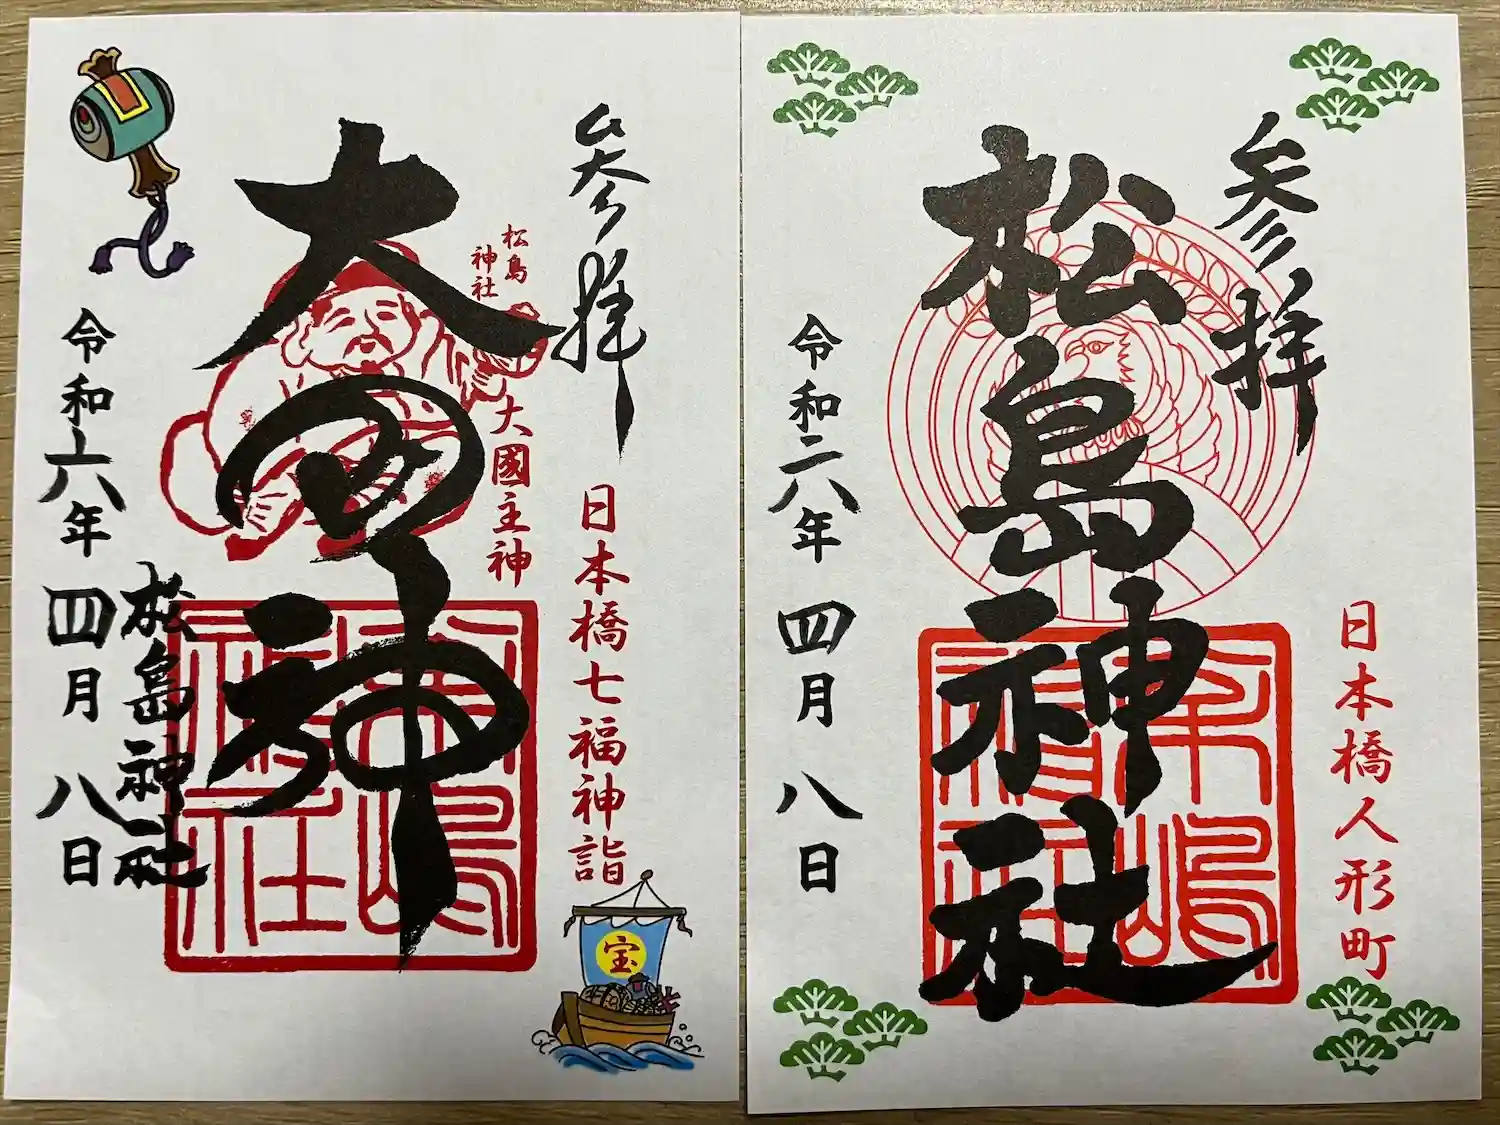 参拝
日本橋七福神詣
松島
神社
大國主神
大国神
松嶋
神社
松島神社
令和六年四月八日
宝
参拝
日本橋人形町
松島神社
松嶋
神社
令和六年四月八日